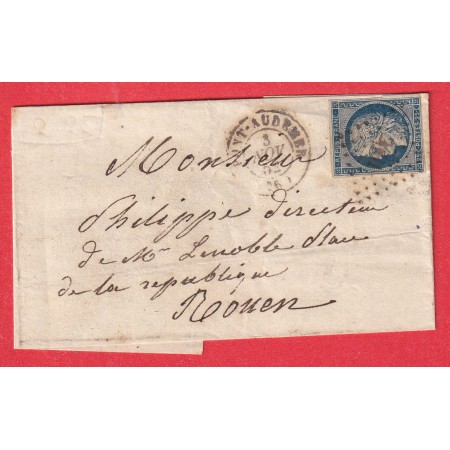 NT-AUDEMER
3
NOV
(26)
Monsieur
Philippe directeur
de Mr Lenoble Place
de la republique
Rouen